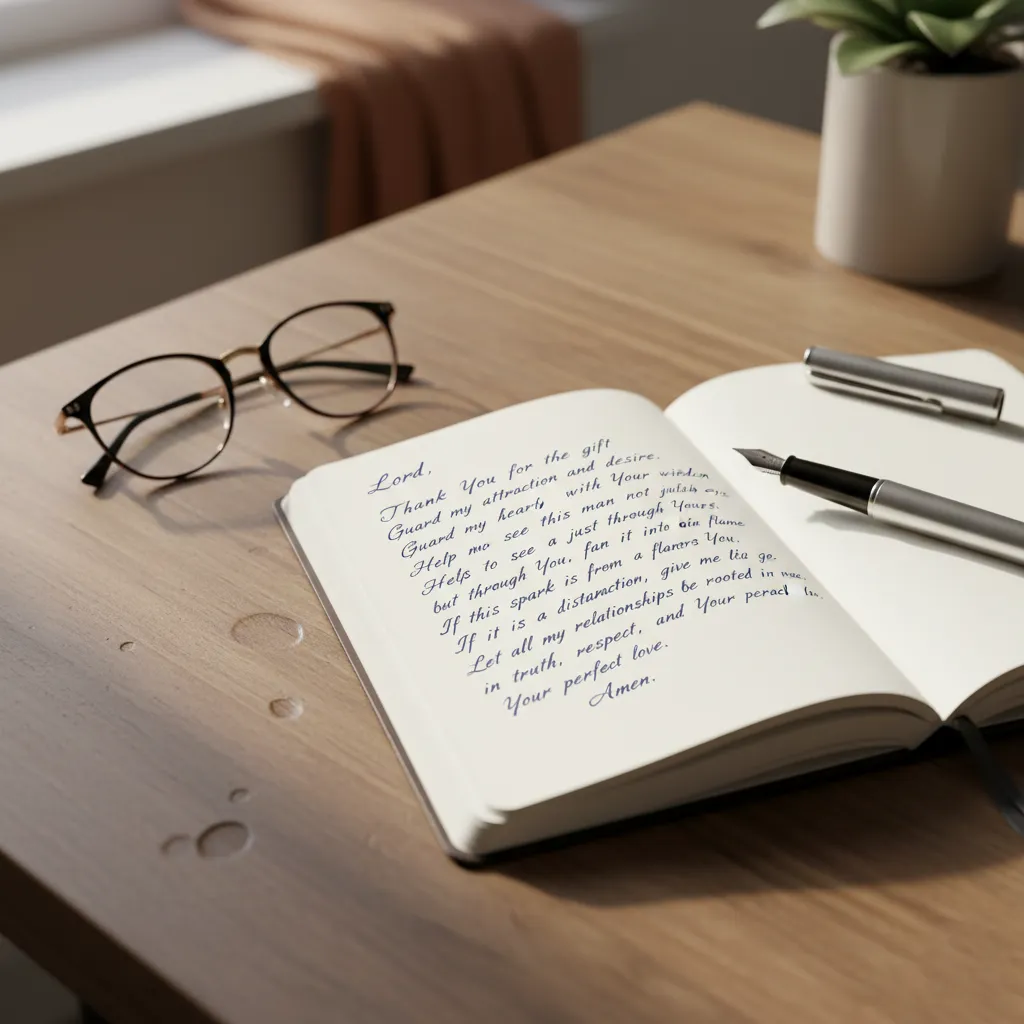 Lord,
Thank You for the gift
Guard my attraction and desire.
Guard my heart, with Your wisdom
Help me see this man not
Helps to see a just through Yours.
but through You, fan it into flame
If this spark is from a You.
If it is a distamction, give me go.
Let all my relationships be rooted in
in truth, respect, and Your
Your perfect love.
Amen.